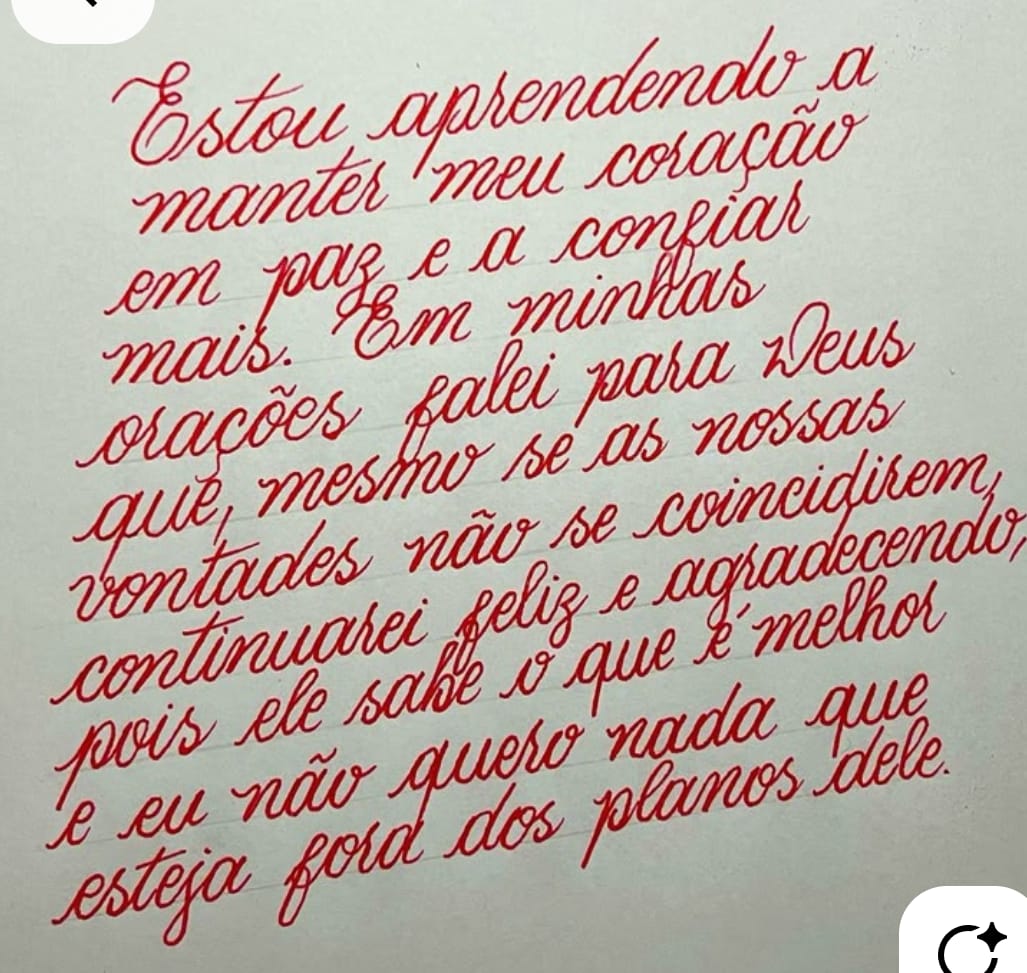 Estou aprendendo a
manter meu coração
em paz e a confiar
mais. Em minhas
orações falei para Deus
que, mesmo se as nossas
vontades não se coincidirem,
continuarei feliz e agradecendo,
pois ele sabe o que é melhor
e eu não quero nada que
esteja fora dos planos dele.